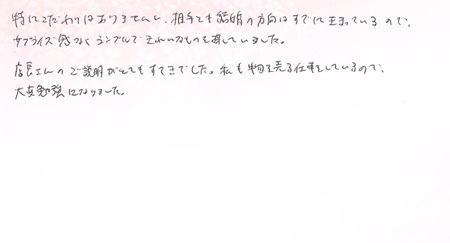 特にこだわりはありませんし、相手とも結婚の方向はすでに決まっているので、
サプライズ感なくシンプルできれいなものを探していました。
店長さんのご説明がとてもすてきでした。私も物を売る仕事をしているので、
大変勉強になりました。